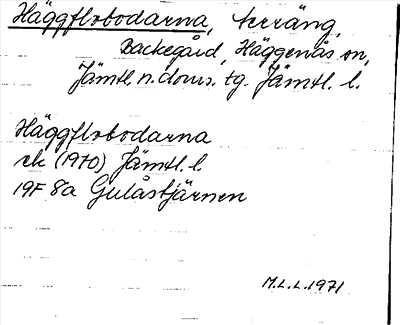 Häggflobodarna, terräng,
Backegård, Häggenås sn,
Jämtl. n. doms. tg. Jämtl. l.
Häggflobodarna
ek (1970) Jämtl. l.
19F 8a Gulåstjärnen
M.L.L. 1971